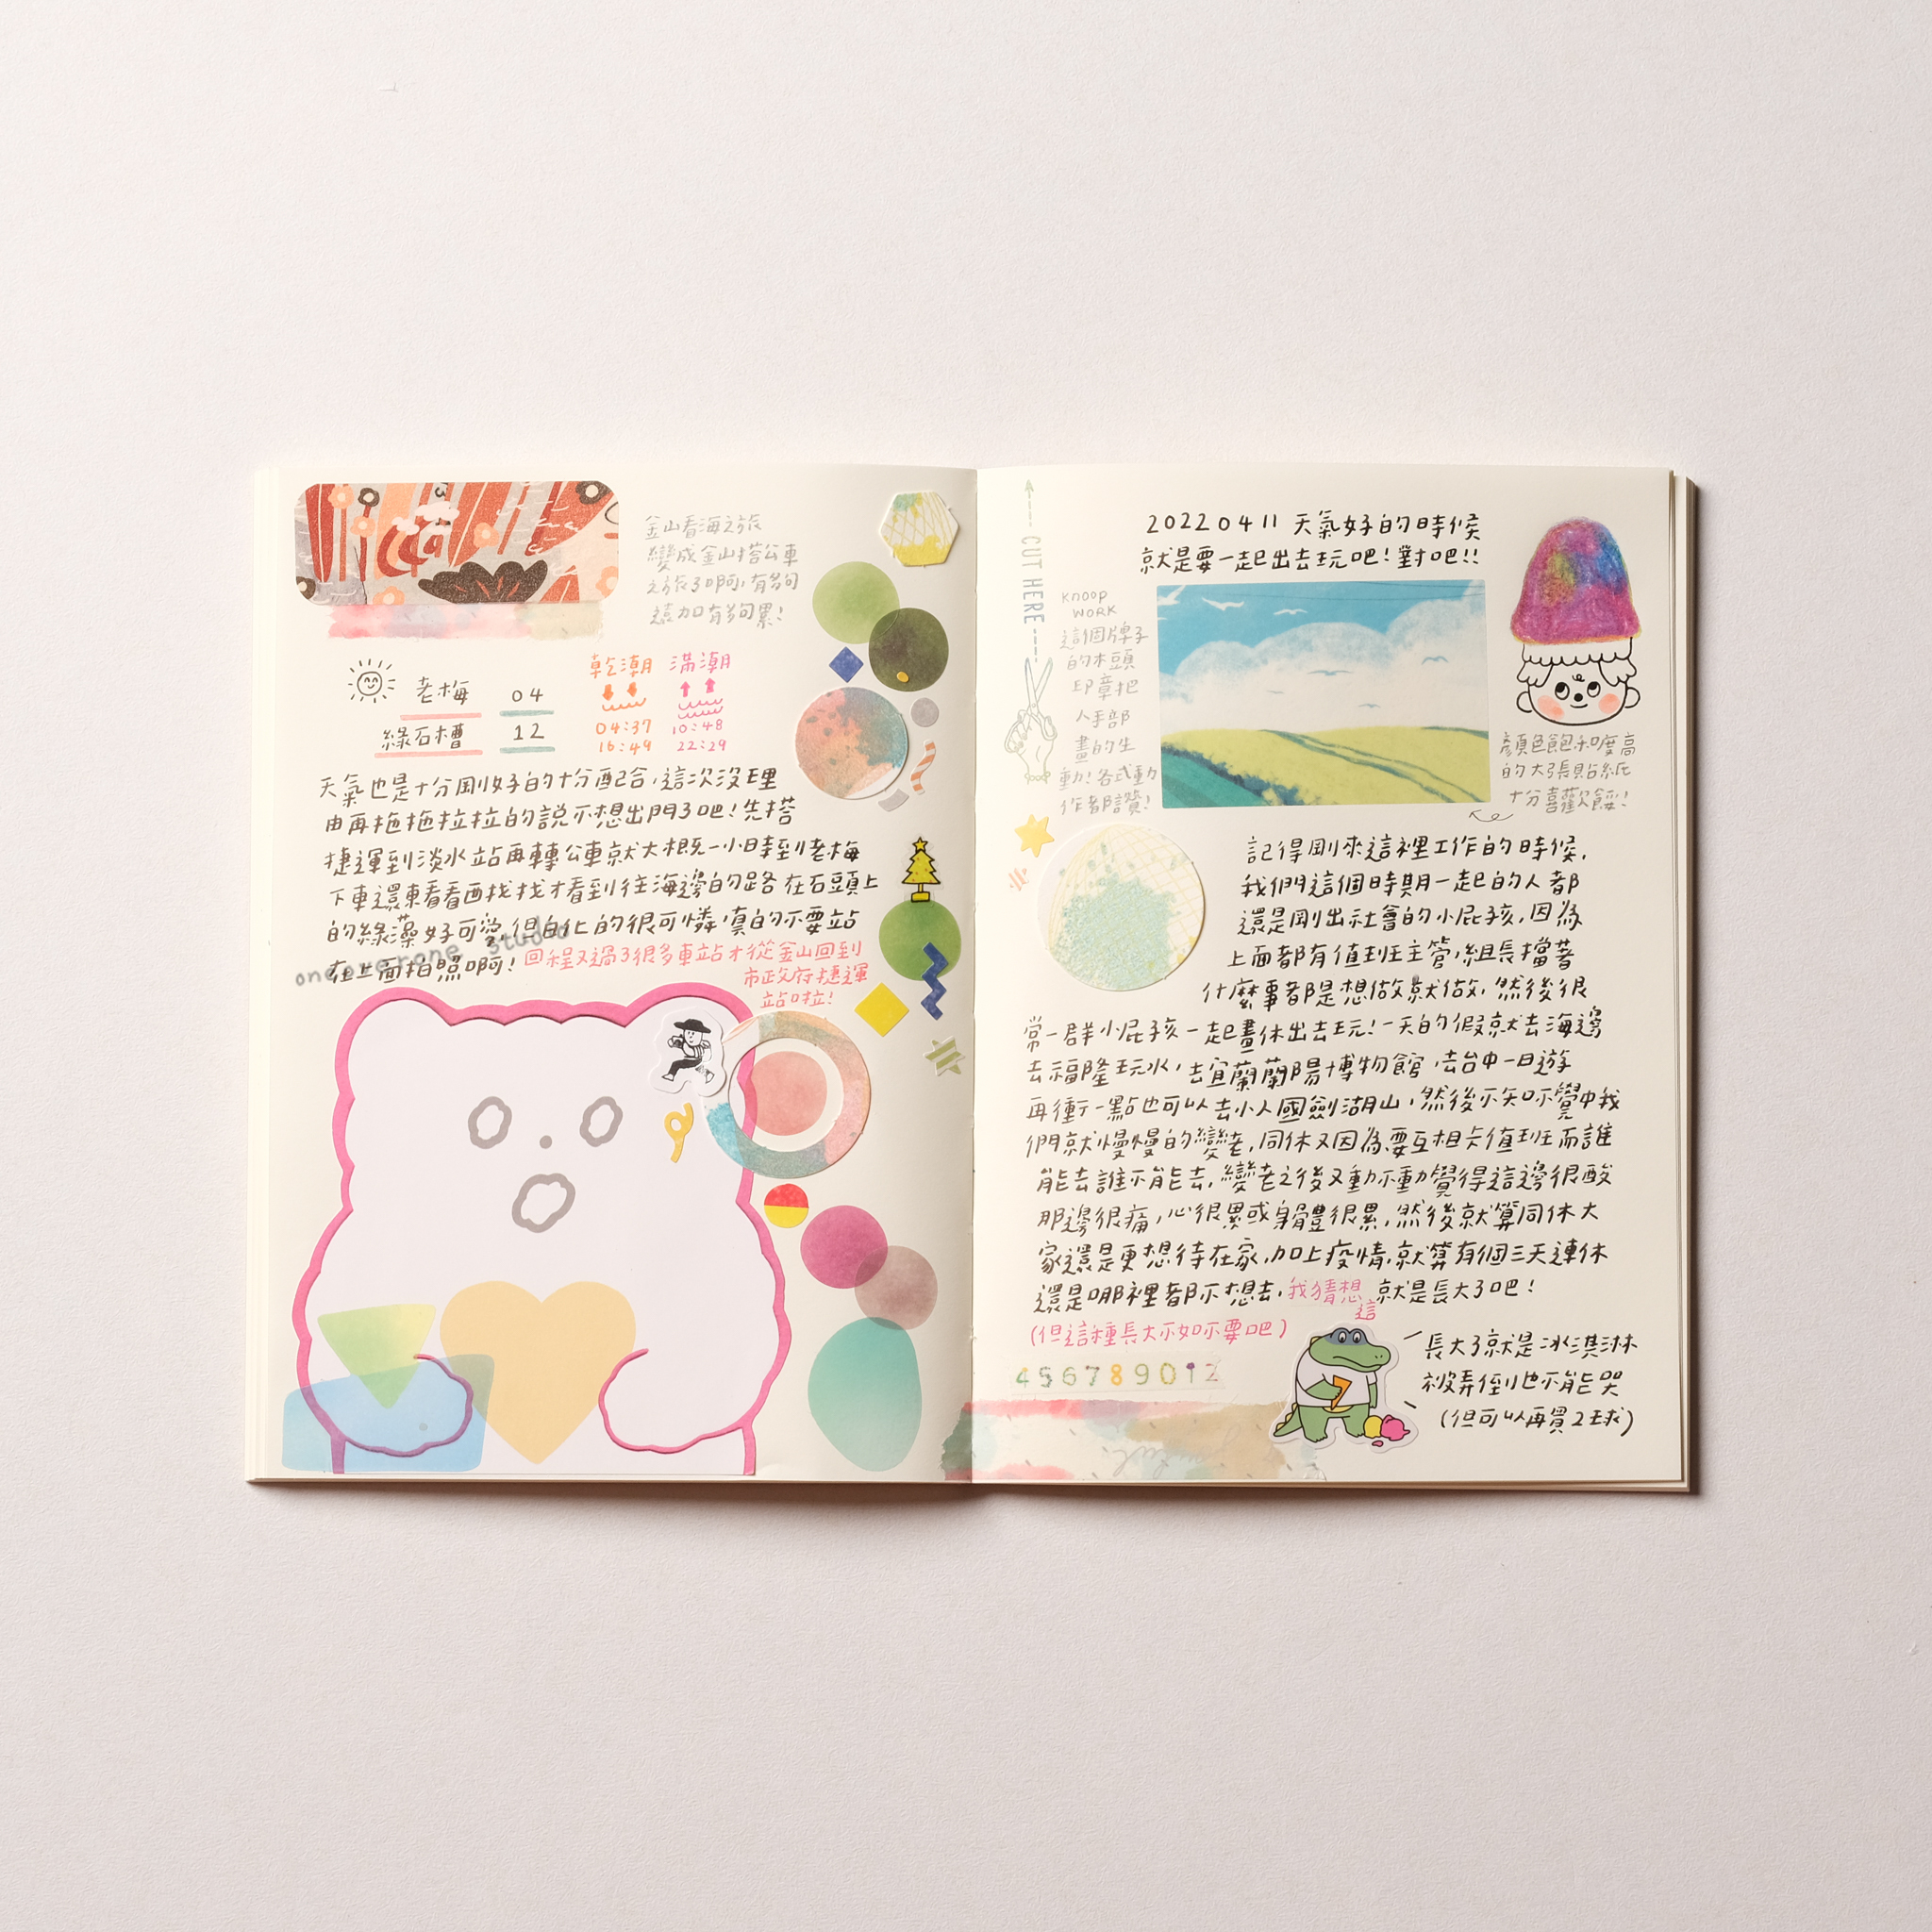 金山看海之旅
變成金山搭公車
之旅了啊,有夠
遠加有夠累!
老梅 04
綠石槽 12
乾潮 滿潮
04:37 10:48
16:49 22:29
天氣也是十分剛好的十分配合,這次沒理
由再拖拖拉拉的說不想出門了吧!先搭
捷運到淡水站再轉公車就大概一小時到老梅
下車還東看看西找找才看到往海邊的路 在石頭上
的綠藻好可愛,但白化的很可憐,真的不要站
在上面拍照啊!
oneoverone studio
回程又過了很多車站才從金山回到
市政府捷運
站啦!
20220411 天氣好的時候
就是要一起出去玩吧!對吧!!
CUT HERE
KNOOP
WORK
這個牌子
的木頭
印章把
人手部
畫的生
動!各式動
作都讚!
顏色飽和度高
的大張貼紙
十分喜歡餒!
記得剛來這裡工作的時候,
我們這個時期一起的人都
還是剛出社會的小屁孩,因為
上面都有值班主管,組長擋著
什麼事都是想做就做,然後很
常一群小屁孩一起畫休出去玩!一天的假就去海邊
去福隆玩水,去宜蘭蘭陽博物館,去台中一日遊
再衝一點也可以去小人國劍湖山,然後不知不覺中我
們就慢慢的變老,同休又因為要互相卡值班而誰
能去誰不能去,變老之後又動不動覺得這邊很酸
那邊很痛,心很累或身體很累,然後就算同休大
家還是更想待在家,加上疫情,就算有個三天連休
還是哪裡都不想去,我猜想這就是長大了吧!
(但這種長大不如不要吧)
456789012
長大了就是冰淇淋
被弄倒也不能哭
(但可以再買2球)